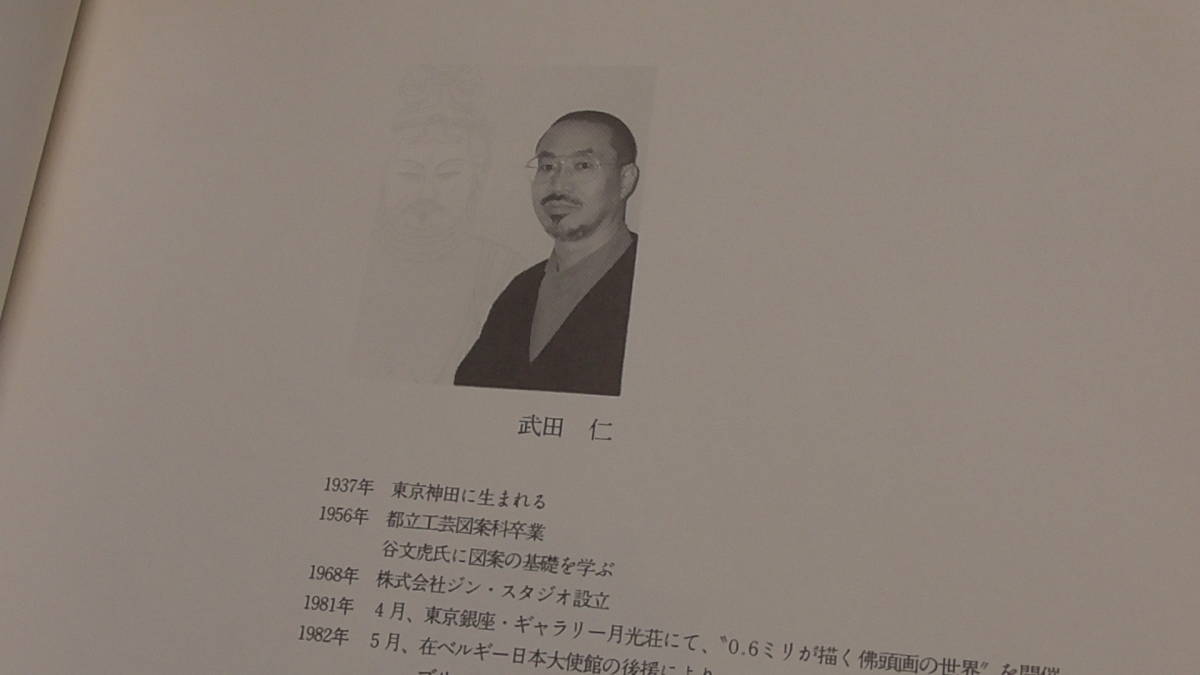 武田 仁
1937年 東京神田に生まれる
1956年 都立工芸図案科卒業
谷文虎氏に図案の基礎を学ぶ
1968年 株式会社ジン・スタジオ設立
1981年 4月、東京銀座・ギャラリー月光荘にて、〝0.6ミリが描く佛頭画の世界〟を開催
1982年 5月、在ベルギー日本大使館の後援により